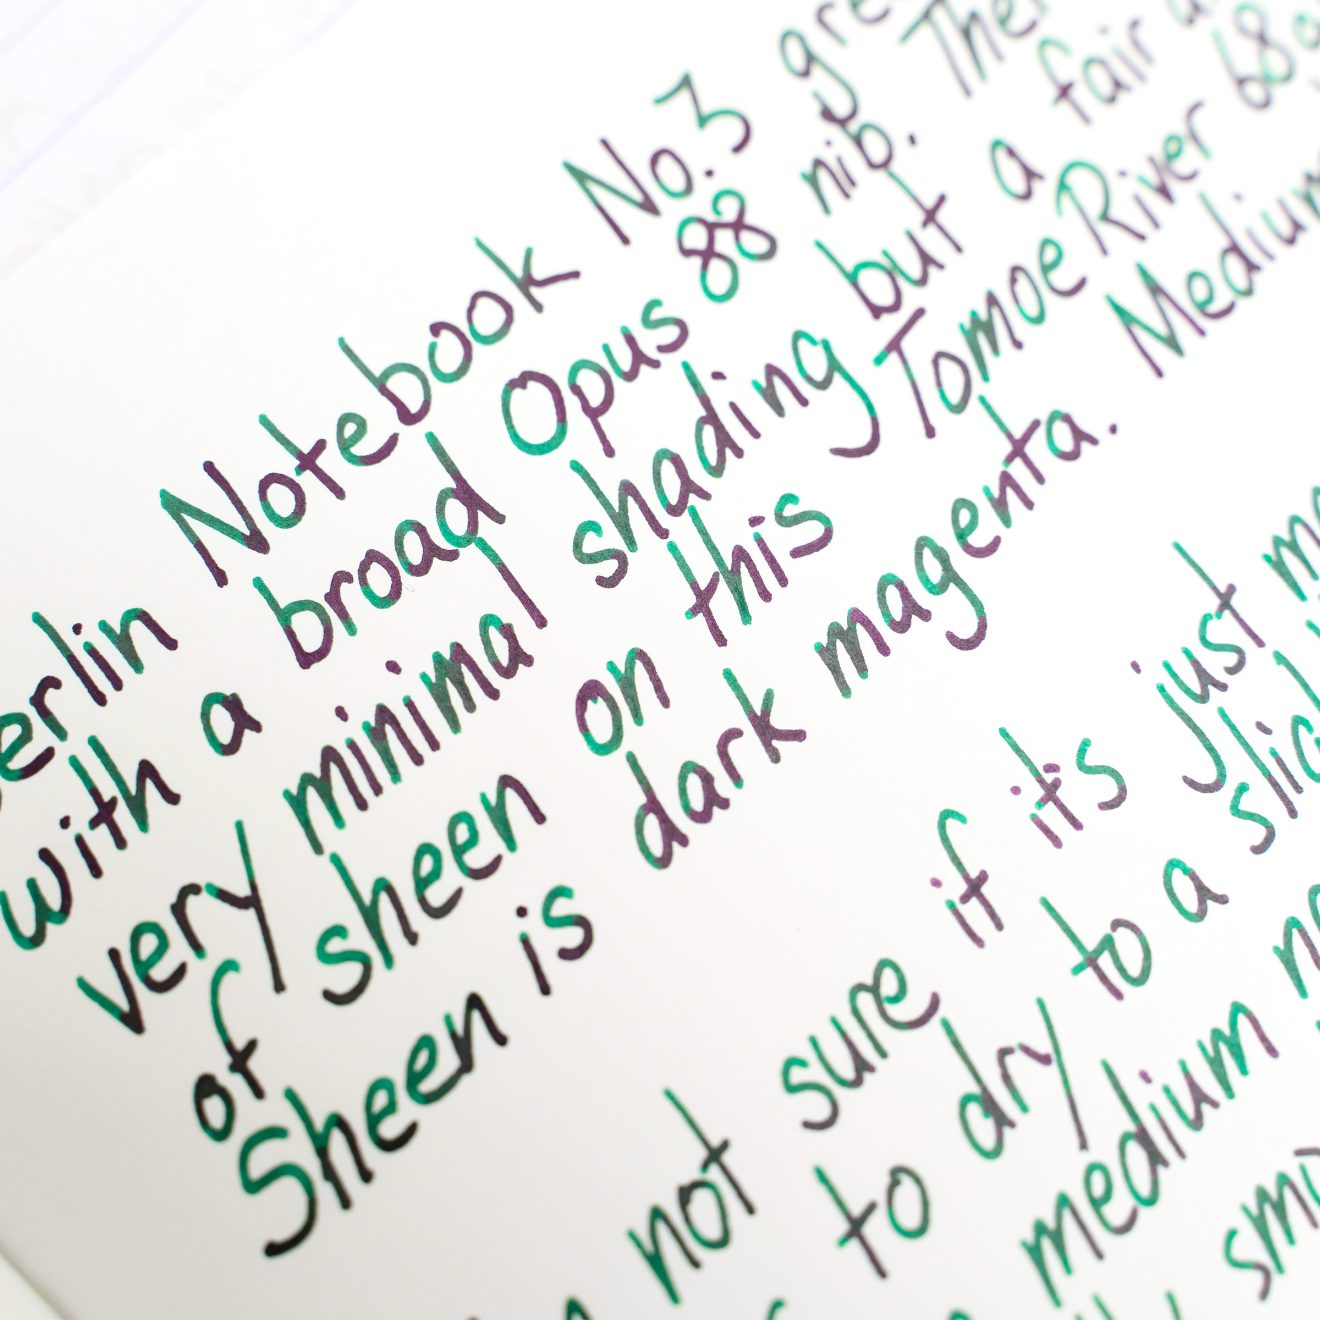 erlin Notebook No.3 gre
with a broad Opus 88 nib. The
very minimal shading but a fair
of sheen on this Tomoe River 68g
Sheen is dark magenta. Medium
not sure if its just
to dry to a slick
medium
smo